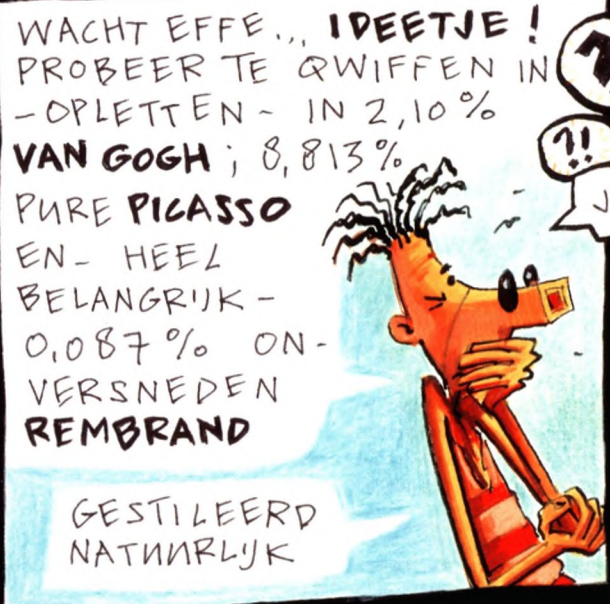 WACHT EFFE... IDEETJE!
PROBEER TE QWIFFEN IN
-OPLETTEN- IN 2,10%
VAN GOGH; 8,813%
PURE PICASSO
EN- HEEL
BELANGRIJK-
0,087% ON-
VERSNEDEN
REMBRAND
GESTILEERD
NATUURLIJK
?!